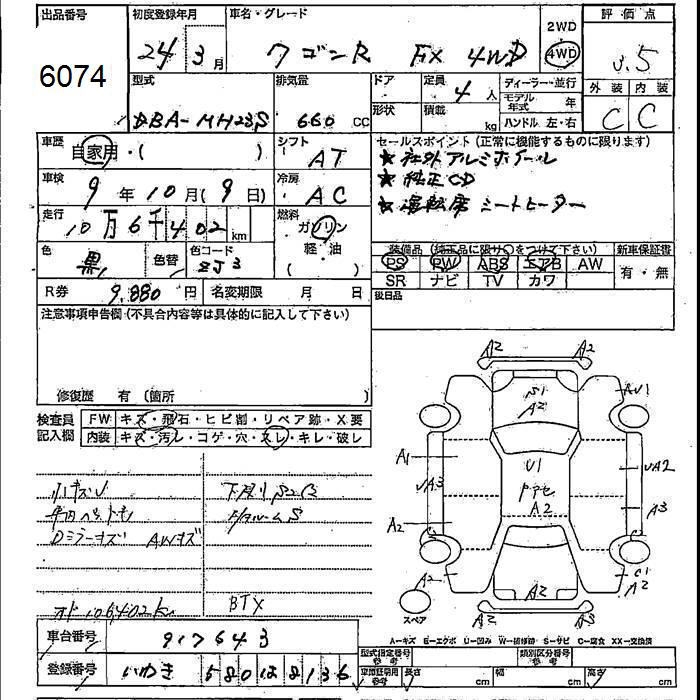 出品番号 初度登録年月 車名・グレード 2WD 評価点
6074 24年3月 ワゴンR FX 4WD 4WD 3.5
型式 排気量 ドア 定員 4人 ディーラー・並行 外装 内装
DBA-MH23S 660 cc 形状 積載 kg モデル年式 年 C C
ハンドル 左・右
車歴 自家用・( ) シフト AT セールスポイント(正常に機能するものに限ります)
★社外アルミホイール
車検 9年10月(9日) 冷房 AC ★純正CD
走行 10万6千402km 燃料 ガソリン 軽・油 ( ) ★運転席シートヒーター
色 黒 色替 色コード ZJ3 装備品(純正品に限り○をつけて下さい) 新車保証書
PS PW ABS エアB AW 有・無
R券 9,880円 名変期限 月 日 SR ナビ TV カワ
注意事項申告欄(不具合内容等は具体的に記入して下さい) 後日品
修復歴 有(箇所
検査員記入欄 FW キズ・飛石・ヒビ割・リペア跡・X要
内装 キズ・汚レ・コゲ・穴・スレ・キレ・破レ
小キズU 下廻りS2B
Dミラーキズ AWキズ
BTX
車台番号 917643
登録番号 いわき 580は8136
A2 A2
S1
A2 AU1
A1 U1 UA2
UA3 A2 A3
A2
A2 A2 C1
A2
A2 A3
スペア
A―キズ E―エクボ U―凹み W―補修跡 S―サビ C―腐食 XX―交換済
型式指定番号 参考 類別区分番号 参考
車庫証明用 参考 長さ cm 幅 cm 高さ cm